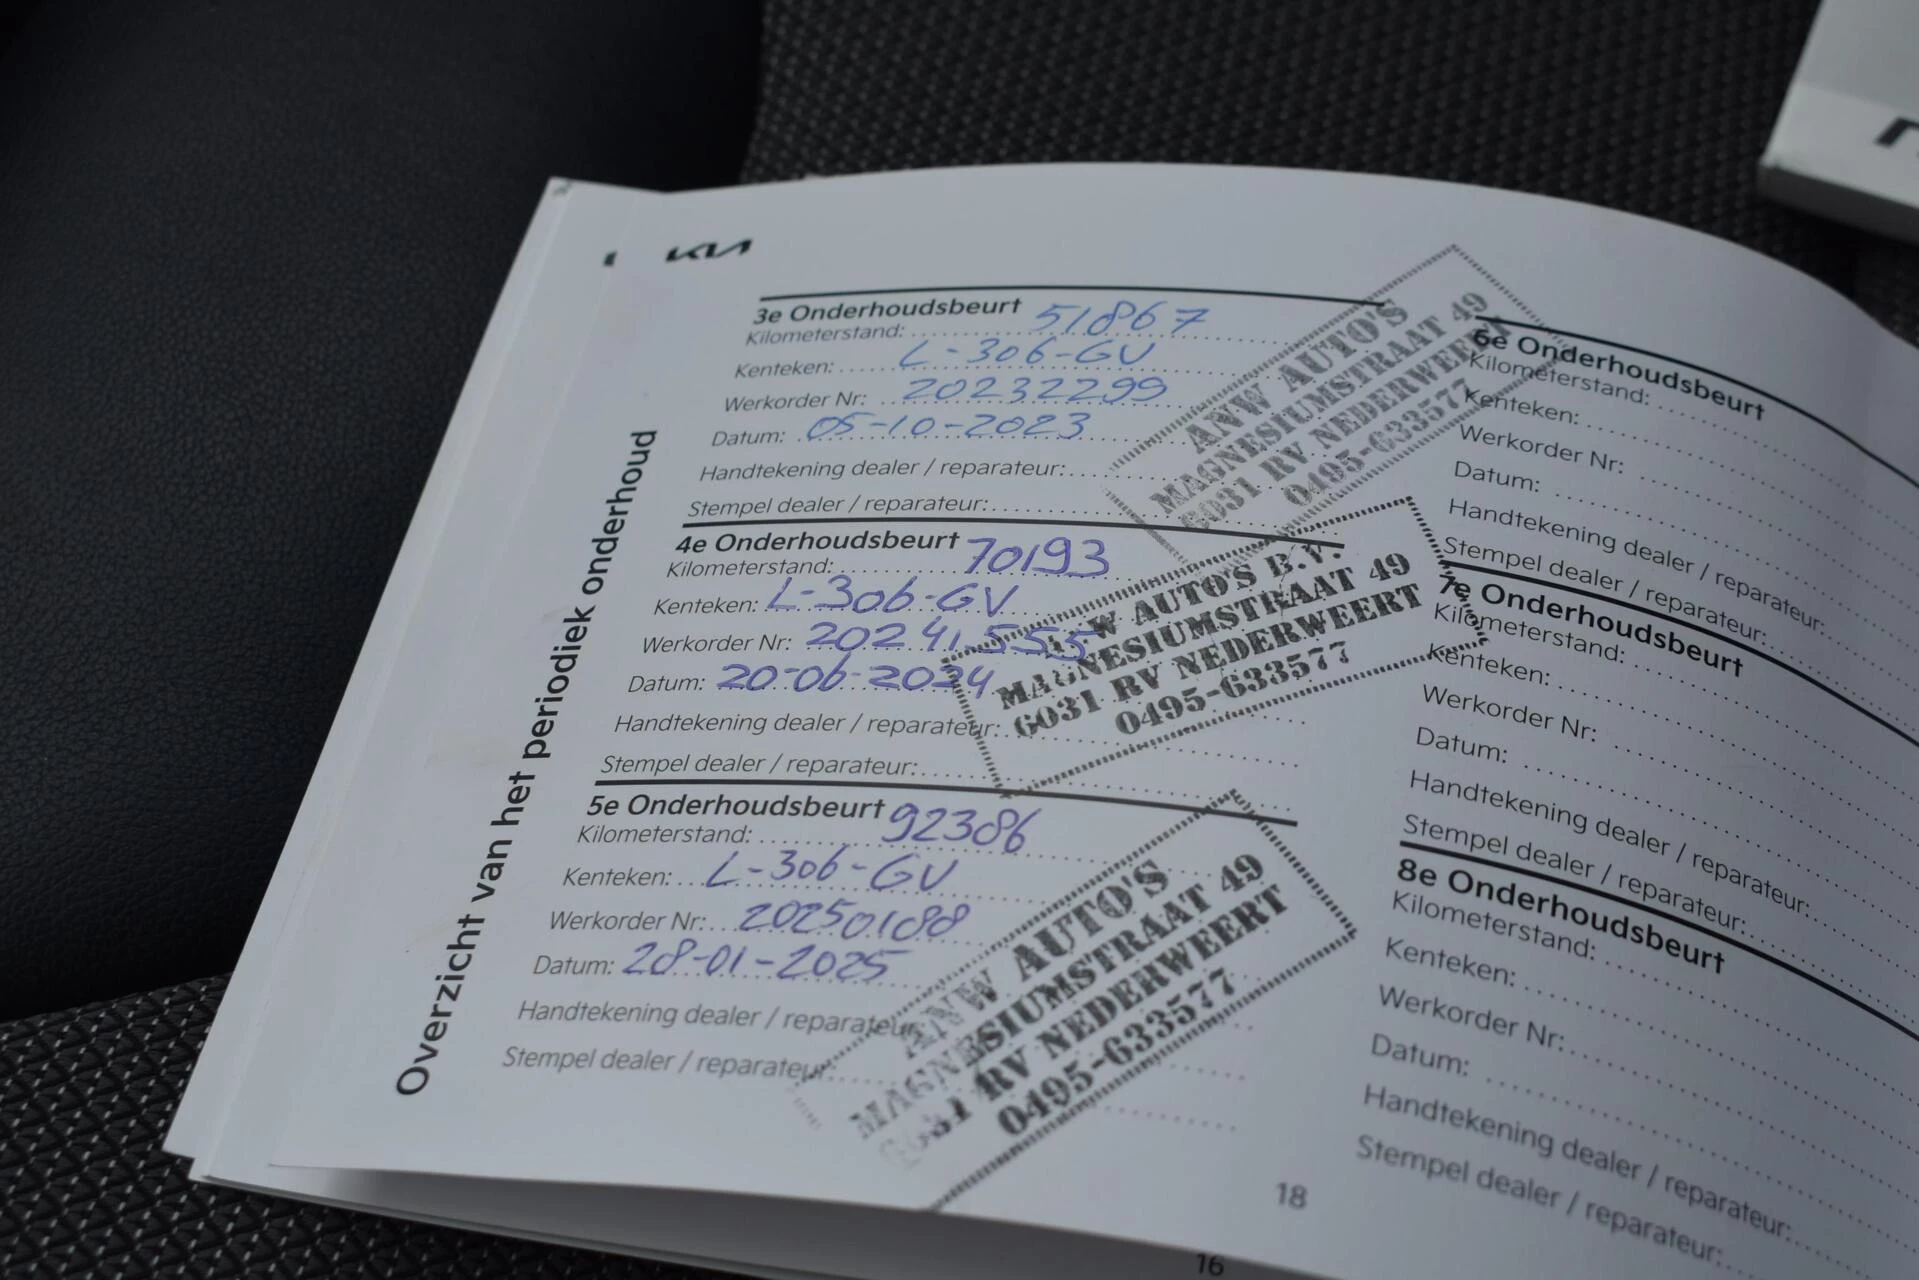 KIA
Overzicht van het periodiek onderhoud
3e Onderhoudsbeurt
Kilometerstand: 51867
Kenteken: L-306-GV
Werkorder Nr: 20232299
Datum: 05-10-2023
Handtekening dealer / reparateur:
Stempel dealer / reparateur:
ANW AUTO'S
MAGNESIUMSTRAAT 49
6031 RV NEDERWEERT
0495-633577
4e Onderhoudsbeurt
Kilometerstand: 70193
Kenteken: L-306-GV
Werkorder Nr: 20241555
Datum: 20-06-2024
Handtekening dealer / reparateur:
Stempel dealer / reparateur:
ANW AUTO'S B.V.
MAGNESIUMSTRAAT 49
6031 RV NEDERWEERT
0495-633577
5e Onderhoudsbeurt
Kilometerstand: 92386
Kenteken: L-306-GV
Werkorder Nr: 20250188
Datum: 28-01-2025
Handtekening dealer / reparateur:
Stempel dealer / reparateur:
ANW AUTO'S
MAGNESIUMSTRAAT 49
6031 RV NEDERWEERT
0495-633577
6e Onderhoudsbeurt
Kilometerstand:
Kenteken:
Werkorder Nr:
Datum:
Handtekening dealer / reparateur:
Stempel dealer / reparateur:
7e Onderhoudsbeurt
Kilometerstand:
Kenteken:
Werkorder Nr:
Datum:
Handtekening dealer / reparateur:
Stempel dealer / reparateur:
8e Onderhoudsbeurt
Kilometerstand:
Kenteken:
Werkorder Nr:
Datum:
Handtekening dealer / reparateur:
Stempel dealer / reparateur:
18
16